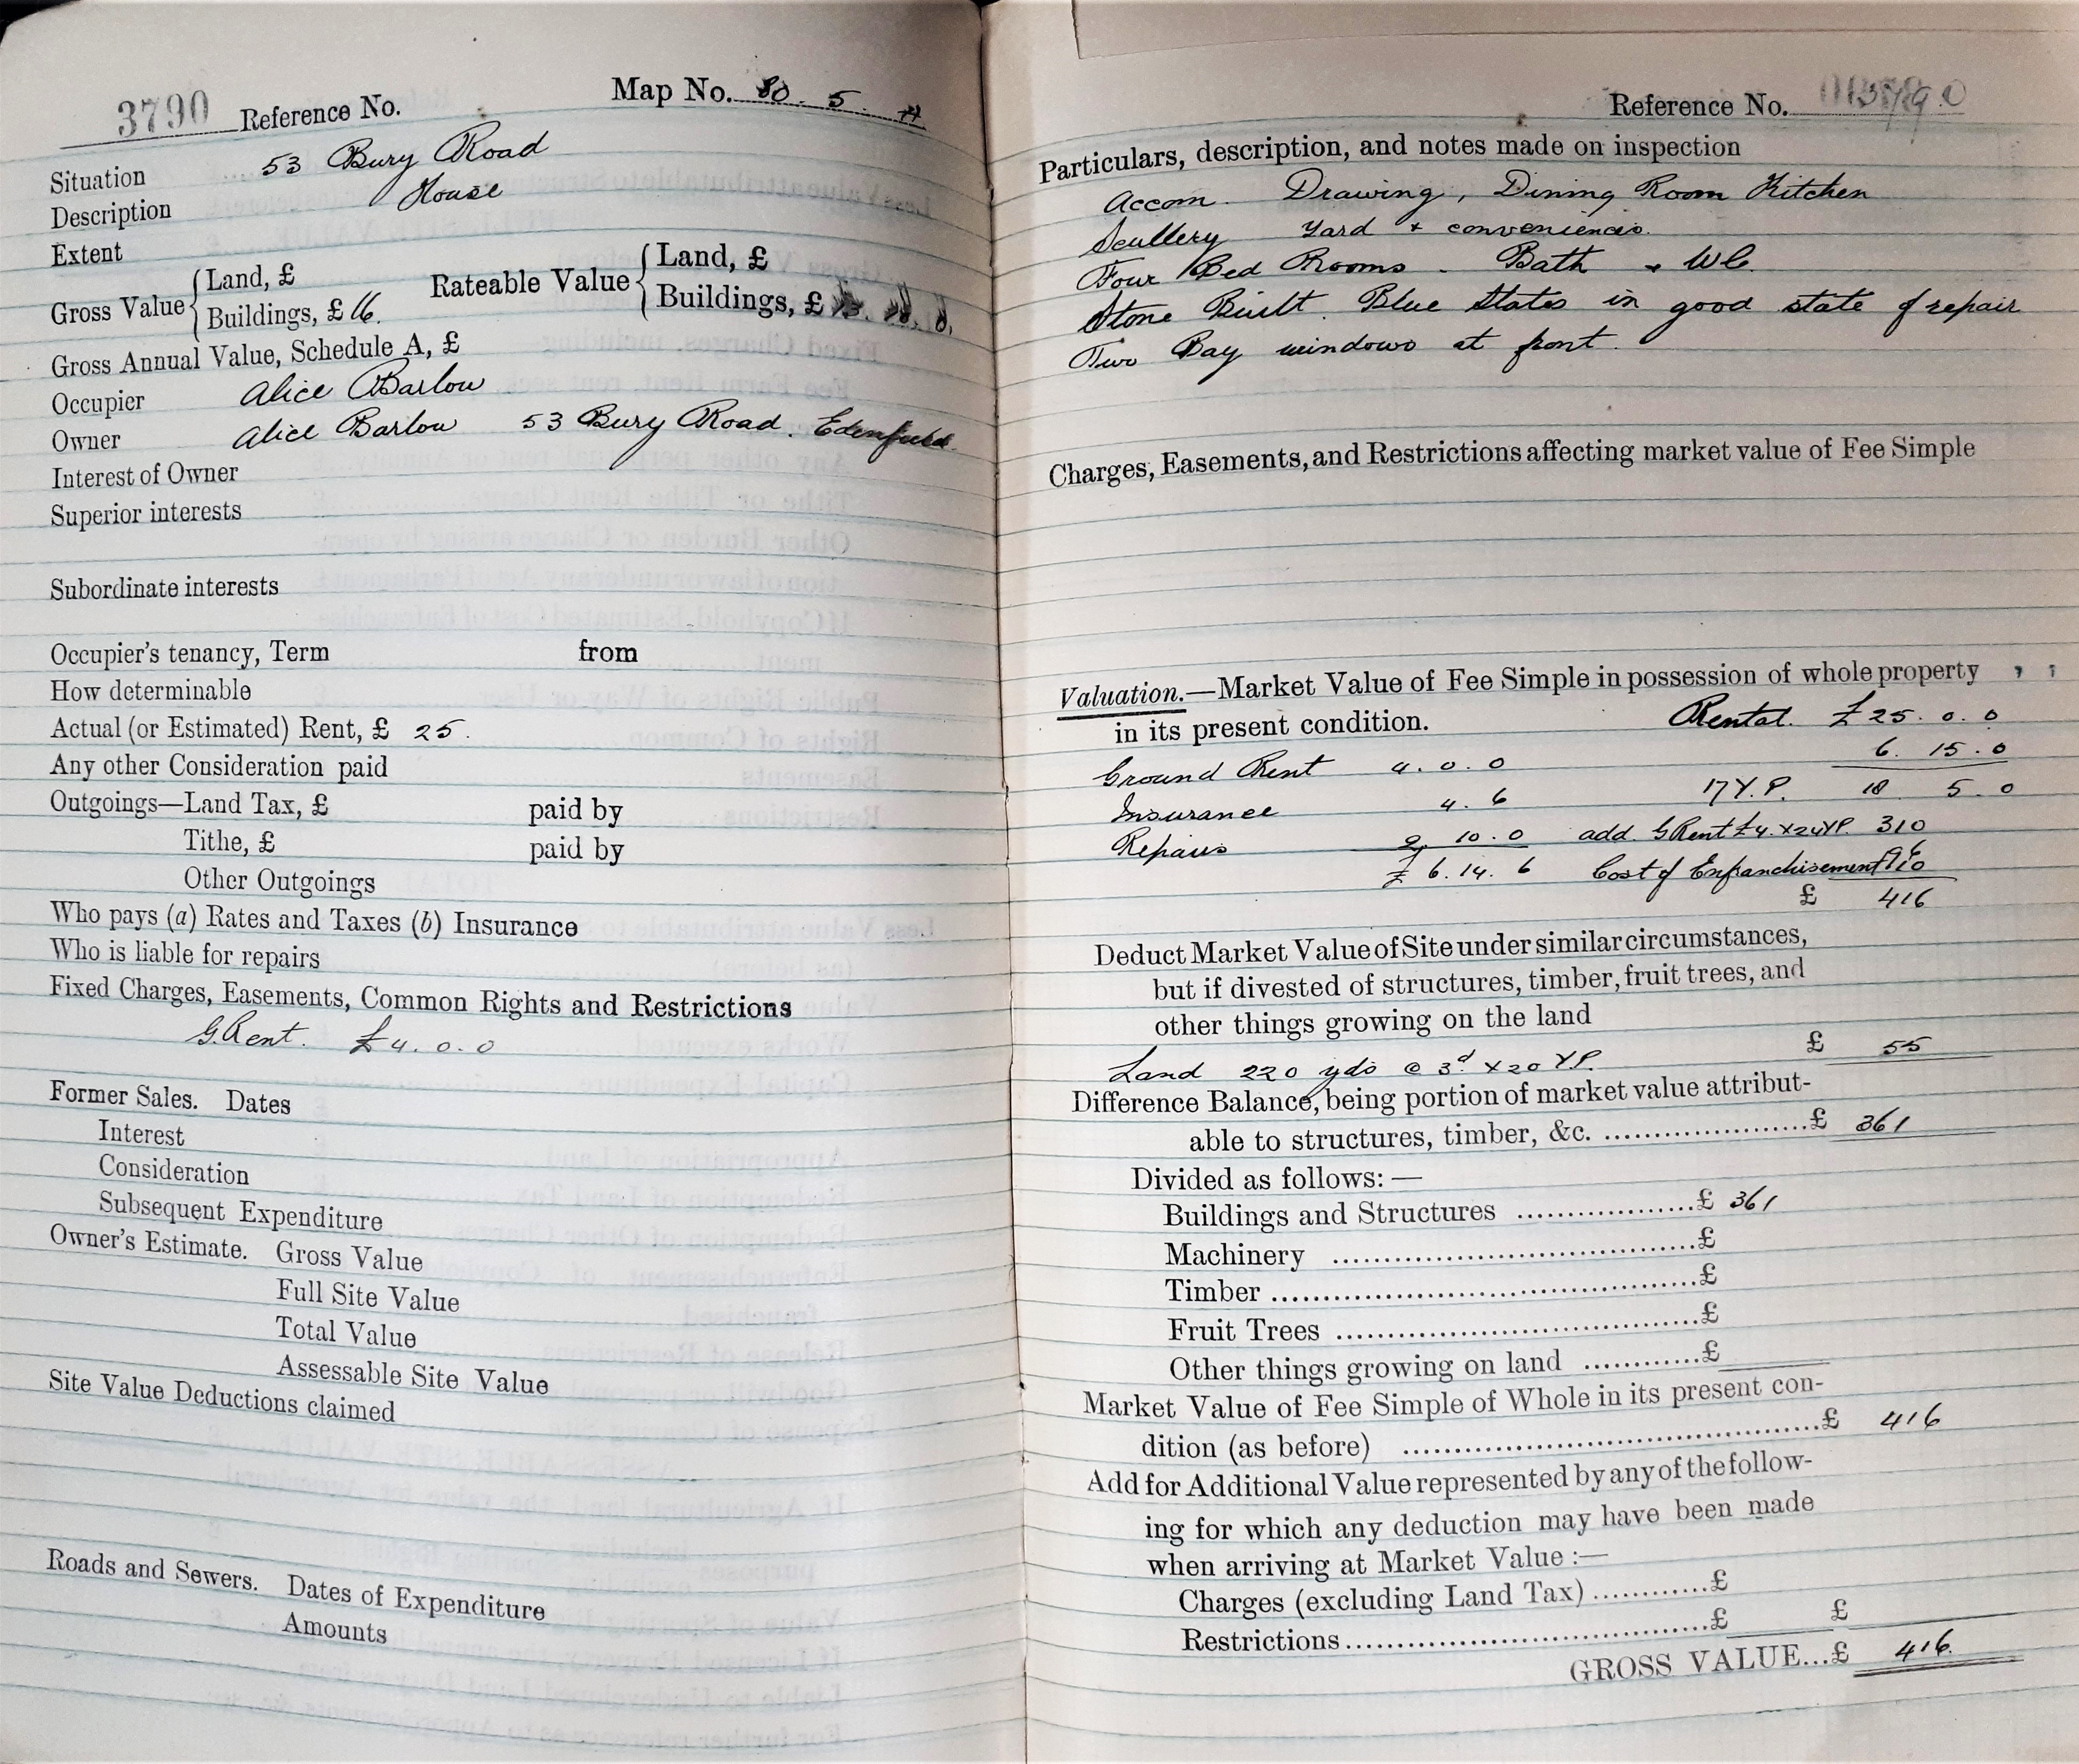 3790 Reference No. Map No. 80. 5.
Situation 53 Bury Road
Description House
Extent
Gross Value { Land, £ Rateable Value { Land, £
Buildings, £ 16. Buildings, £
Gross Annual Value, Schedule A, £
Occupier Alice Barlow
Owner Alice Barlow 53 Bury Road. Edenfield.
Interest of Owner
Superior interests
Subordinate interests
Occupier's tenancy, Term from
How determinable
Actual (or Estimated) Rent, £ 25.
Any other Consideration paid
Outgoings—Land Tax, £ paid by
Tithe, £ paid by
Other Outgoings
Who pays (a) Rates and Taxes (b) Insurance
Who is liable for repairs
Fixed Charges, Easements, Common Rights and Restrictions
G. Rent. £4. 0. 0
Former Sales. Dates
Interest
Consideration
Subsequent Expenditure
Owner's Estimate. Gross Value
Full Site Value
Total Value
Assessable Site Value
Site Value Deductions claimed
Roads and Sewers. Dates of Expenditure
Amounts
Reference No.
Particulars, description, and notes made on inspection
Accom. Drawing, Dining Room Kitchen
Scullery Yard + conveniences.
Four Bed Rooms. Bath + WC.
Stone Built. Blue Slates in good state of repair
Two Bay windows at front.
Charges, Easements, and Restrictions affecting market value of Fee Simple
Valuation.—Market Value of Fee Simple in possession of whole property
in its present condition. Rental. £25. 0. 0
Ground Rent 4. 0. 0 6. 15. 0
Insurance 4. 6 17 Y.P. 18 5. 0
Repairs 2. 10. 0 add G Rent £4. x 24 YP. 310
£ 6. 14. 6 Cost of Enfranchisement 10
£ 416
Deduct Market Value of Site under similar circumstances,
but if divested of structures, timber, fruit trees, and
other things growing on the land
Land 220 yds @ 3d x 20 YP. £ 55
Difference Balance, being portion of market value attribut-
able to structures, timber, &c. £ 361
Divided as follows:—
Buildings and Structures £ 361
Machinery £
Timber £
Fruit Trees £
Other things growing on land £
Market Value of Fee Simple of Whole in its present con-
dition (as before) £ 416
Add for Additional Value represented by any of the follow-
ing for which any deduction may have been made
when arriving at Market Value :—
Charges (excluding Land Tax) £
Restrictions £ £
GROSS VALUE...£ 416.